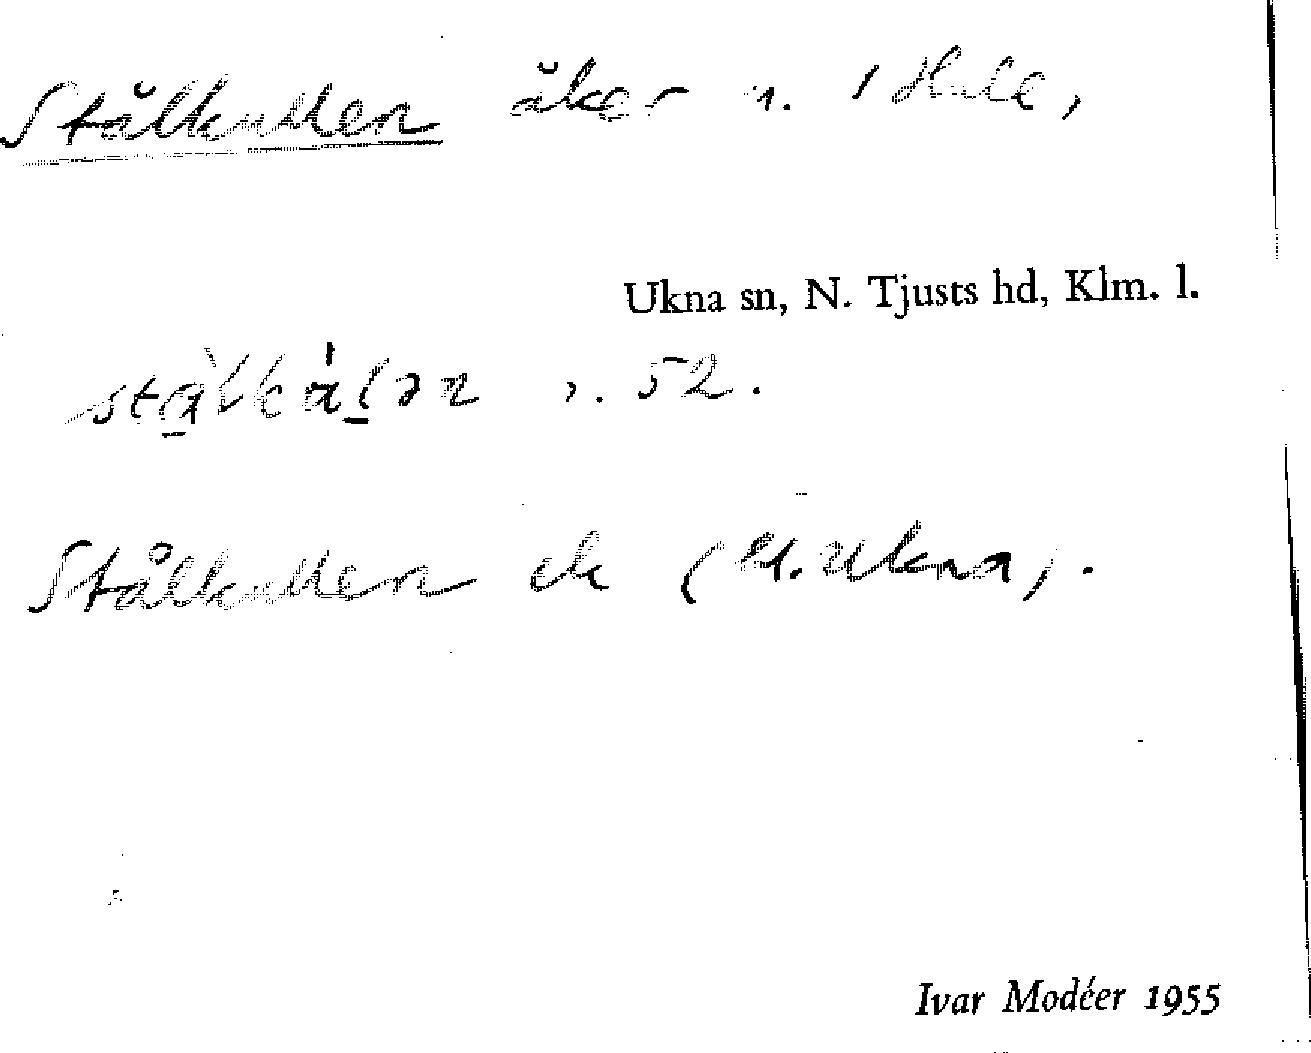 Stålkullen åker n. i Hule,
Ukna sn, N. Tjusts hd, Klm. l.
52.
Stålkullen ek (H. Ukna).
Ivar Modéer 1955